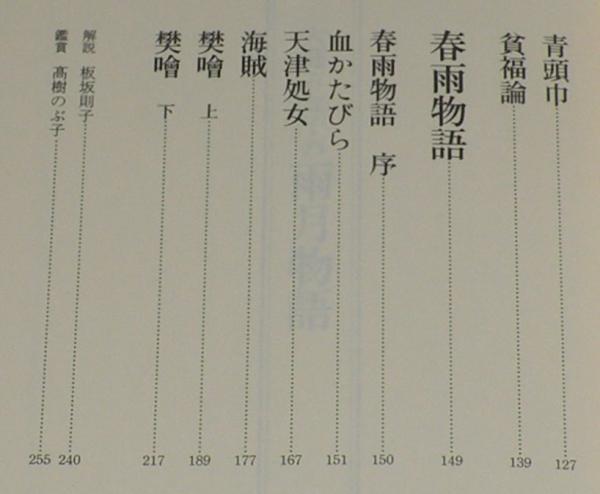 青頭巾 127
貧福論 139
春雨物語 149
春雨物語 序 150
血かたびら 151
天津処女 167
海賊 177
樊噲 上 189
樊噲 下 217
解説 板坂則子 240
鑑賞 髙樹のぶ子 255
雨月物語